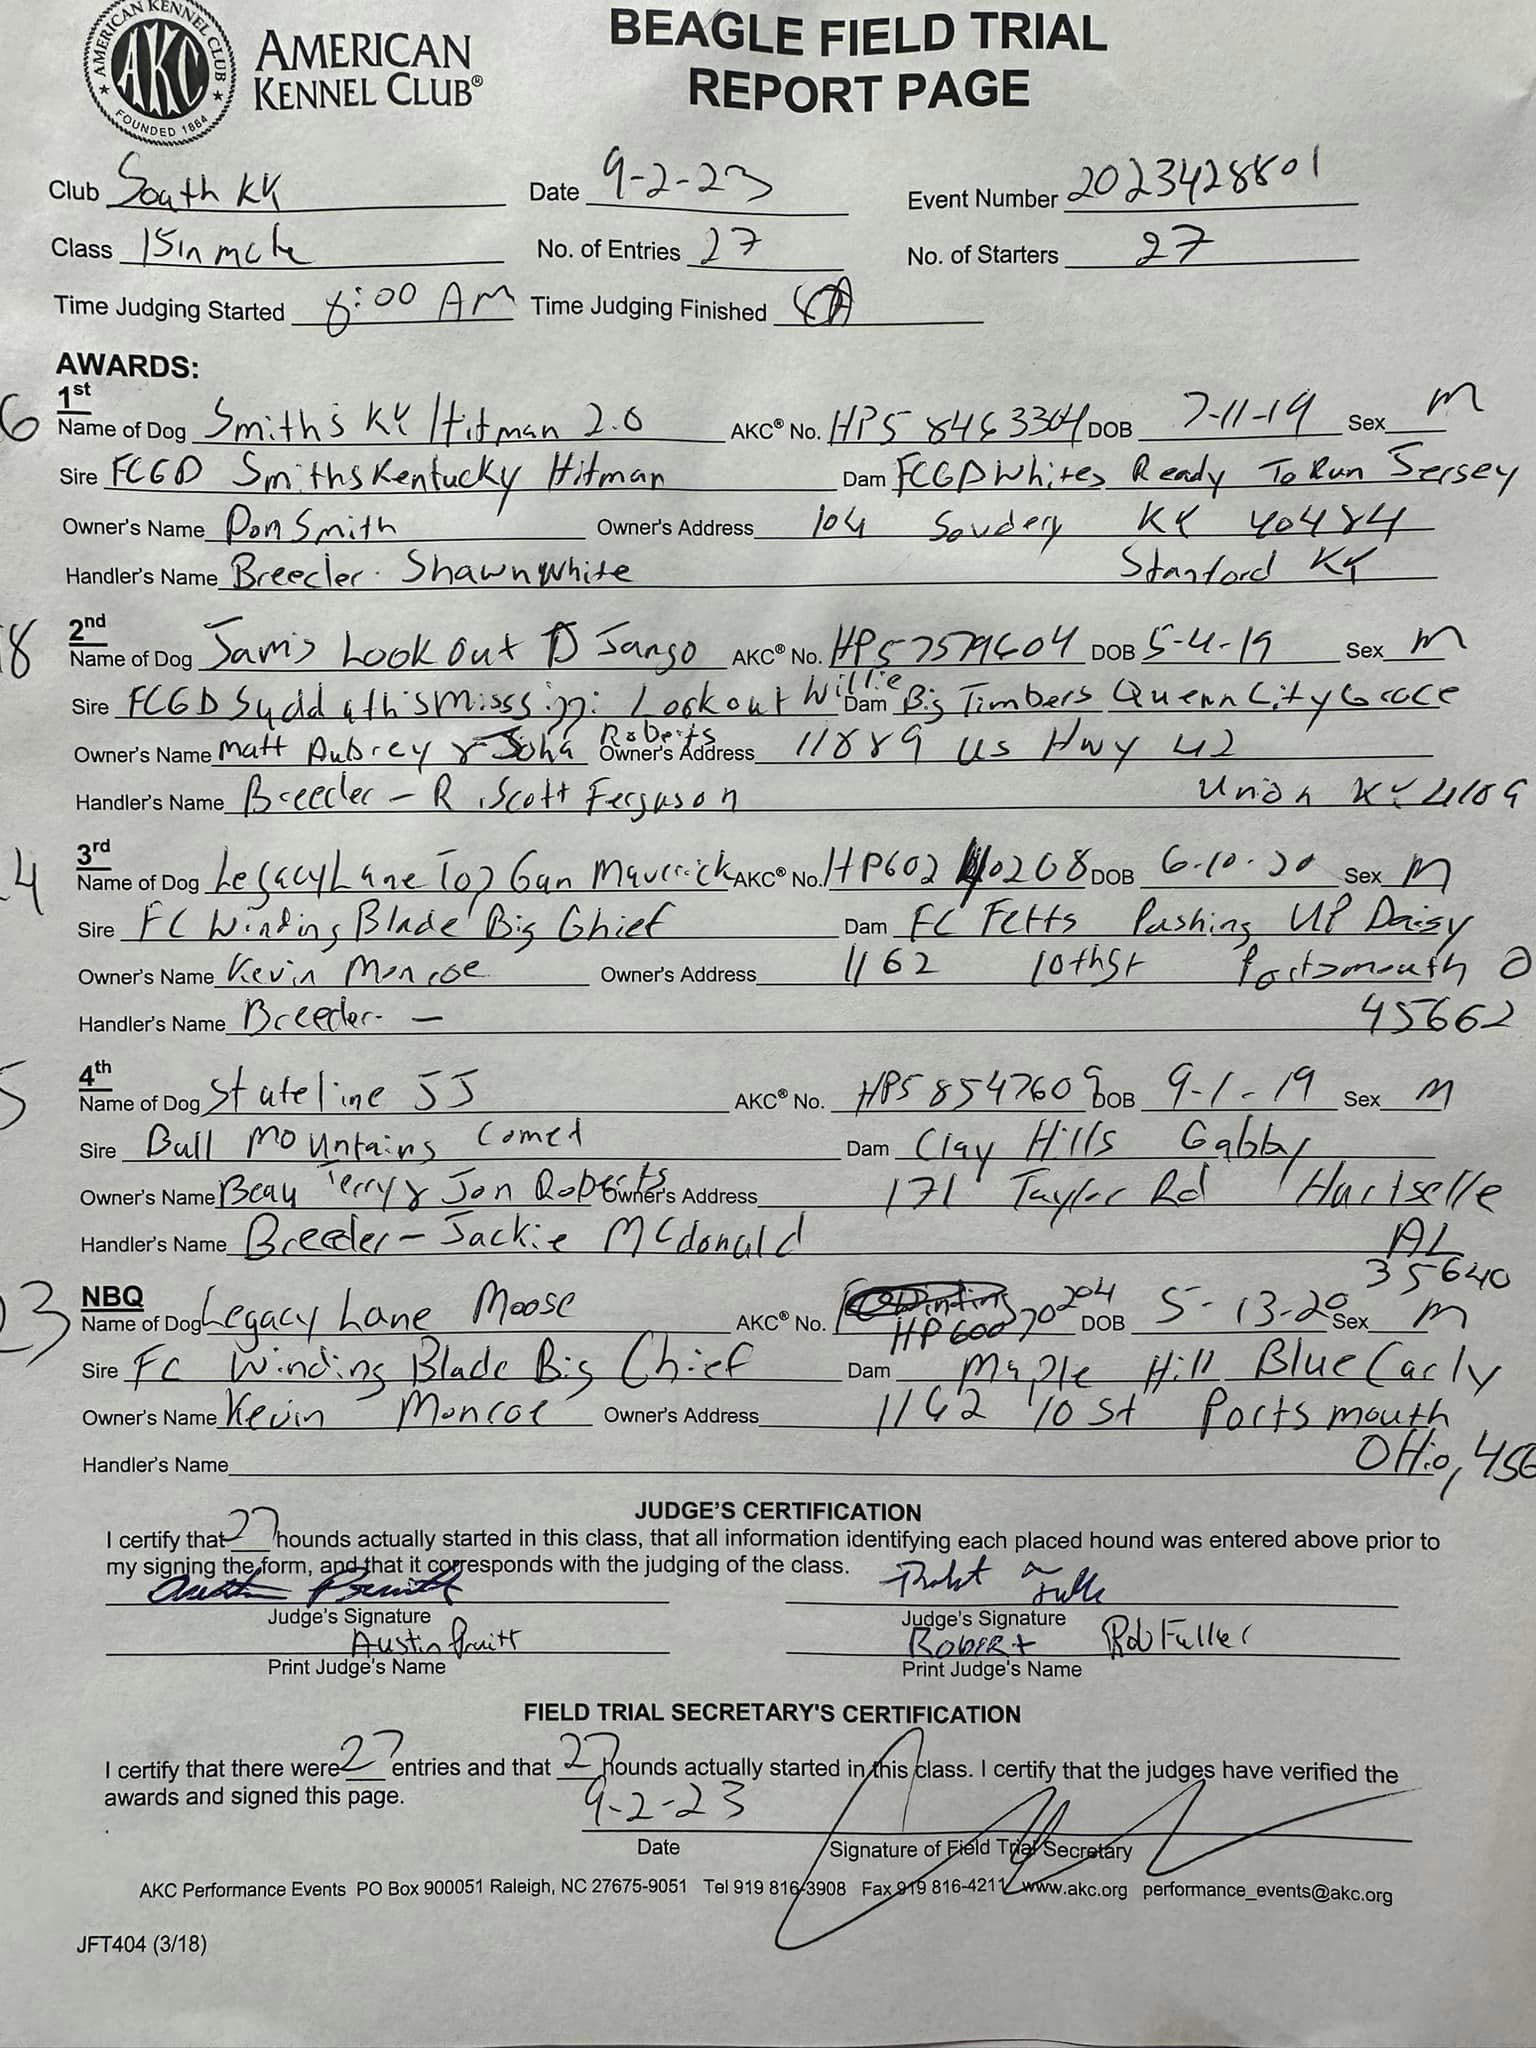 AMERICAN KENNEL CLUB
AKC
FOUNDED 1884
AMERICAN
KENNEL CLUB®
BEAGLE FIELD TRIAL
REPORT PAGE
Club South KY Date 9-2-23 Event Number 2023428801
Class 15in male No. of Entries 27 No. of Starters 27
Time Judging Started 8:00 AM Time Judging Finished
AWARDS:
1st
6 Name of Dog Smith's KY Hitman 2.0 AKC® No. HP58463304 DOB 7-11-19 Sex M
Sire FCGD Smiths Kentucky Hitman Dam FCGD Whites Ready To Run Jersey
Owner's Name Don Smith Owner's Address 104 KY 40484
Handler's Name Breeder- Shawn White Stanford KY
2nd
18 Name of Dog Jam's Look Out D Jango AKC® No. HP57579604 DOB 5-4-19 Sex M
Sire FCGD Suddath's Misssippi Lookout Willie Dam Big Timbers Quenn City Grace
Owner's Name Matt Aubrey & John Roberts Owner's Address 11889 US Hwy 42
Handler's Name Breeder - R. Scott Ferguson Union KY 4109
3rd
4 Name of Dog Legacy Lane Top Gun Maverick AKC® No. HP602 10208 DOB 6-10-20 Sex M
Sire FC Winding Blade Big Chief Dam FC Fetts Pushing UP Daisy
Owner's Name Kevin Monroe Owner's Address 1162 10th St Portsmouth O
Handler's Name Breeder- — 45662
4th
5 Name of Dog Stateline JJ AKC® No. HP58547609 DOB 9-1-19 Sex M
Sire Bull Mountains Comet Dam Clay Hills Gabby
Owner's Name Beau Terry & Jon Roberts Owner's Address 171 Taylor Rd Hartselle
Handler's Name Breeder- Jackie McDonald AL
35640
NBQ
23 Name of Dog Legacy Lane Moose AKC® No. HP60070204 DOB 5-13-20 Sex M
Sire FC Winding Blade Big Chief Dam Maple Hill Blue Carly
Owner's Name Kevin Monroe Owner's Address 1162 10 St Portsmouth
Handler's Name OHio, 456
JUDGE'S CERTIFICATION
I certify that 27 hounds actually started in this class, that all information identifying each placed hound was entered above prior to
my signing the form, and that it corresponds with the judging of the class.
Austin Pruitt
Judge's Signature Judge's Signature
Austin Pruitt Robert Rob Fuller
Print Judge's Name Print Judge's Name
FIELD TRIAL SECRETARY'S CERTIFICATION
I certify that there were 27 entries and that 27 hounds actually started in this class. I certify that the judges have verified the
awards and signed this page.
9-2-23
Date Signature of Field Trial Secretary
AKC Performance Events PO Box 900051 Raleigh, NC 27675-9051 Tel 919 816-3908 Fax 919 816-4211 www.akc.org performance_events@akc.org
JFT404 (3/18)